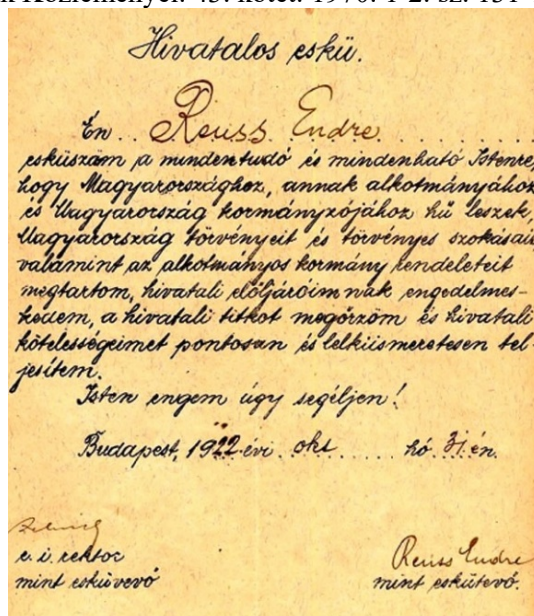 Közleményei. 43. kötet. 1970. 1-2. sz. 131
Hivatalos eskü.
Én .. Reuss Endre
esküszöm a mindentudó és mindenható Istenre,
hogy Magyarországhoz, annak alkotmányához
és Magyarország kormányzójához hű leszek,
Magyarország törvényeit és törvényes szokásait,
valamint az alkotmányos kormány rendeleteit
megtartom, hivatali elöljáróimnak engedelmes-
kedem, a hivatali titkot megőrzöm és hivatali
kötelességeimet pontosan és lelkiismeretesen tel-
jesítem.
Isten engem úgy segéljen!
Budapest, 1922. évi okt hó 31 én.
e. i. rektor
mint esküvevő
Reuss Endre
mint eskütevő.